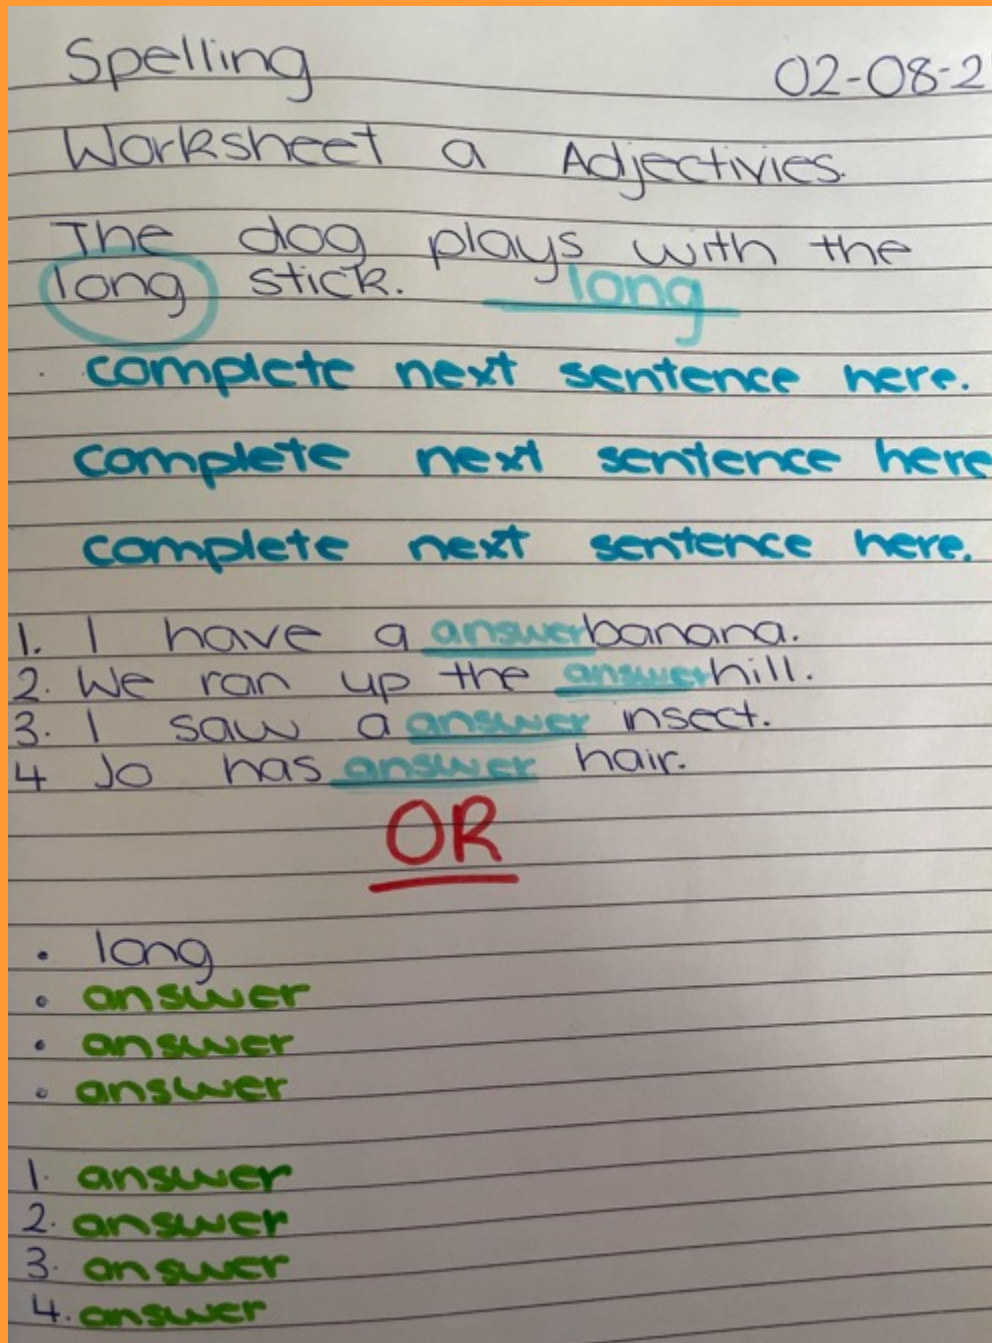 Spelling 02-08-2
Worksheet a Adjectivies.
The dog plays with the
long stick. long
. complete next sentence here.
complete next sentence here
complete next sentence here.
1. I have a answer banana.
2. We ran up the answer hill.
3. I saw a answer insect.
4 Jo has answer hair.
OR
• long
• answer
• answer
• answer
1. answer
2. answer
3. answer
4. answer